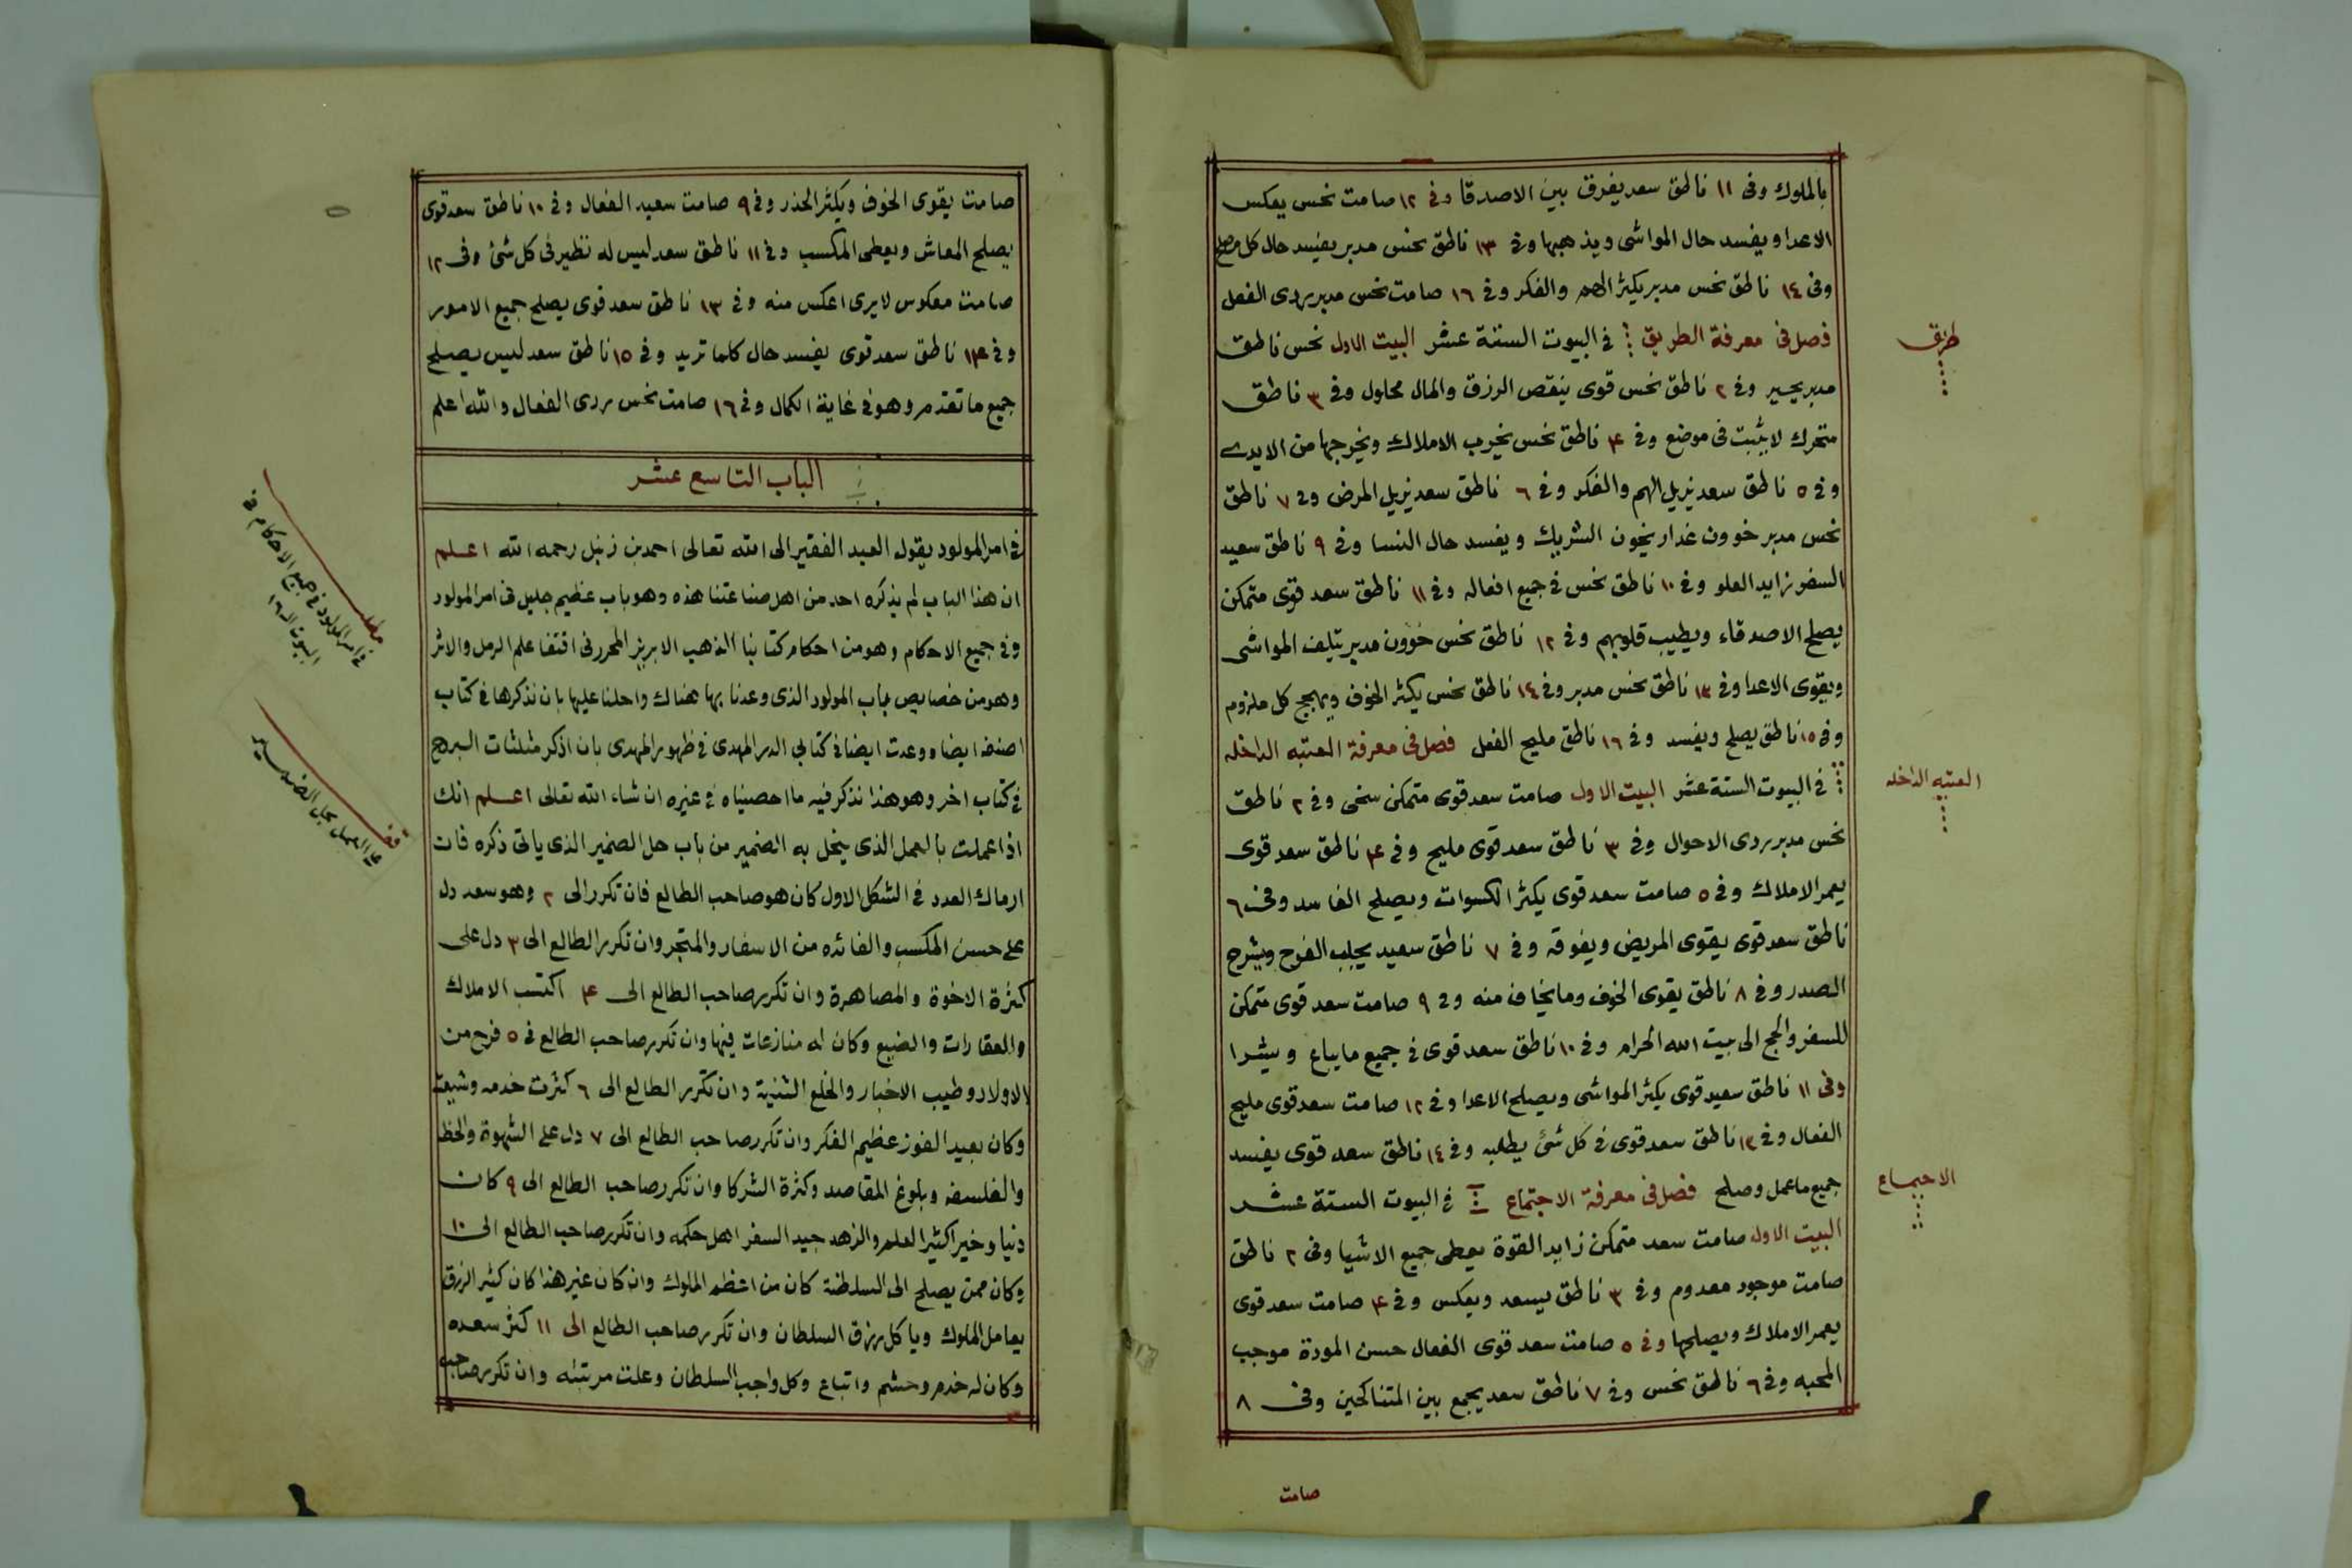 بالملوك وفى ١١ ناطق سعد يفرق بين الاصدقا وفى ١٢ صامت نحس يعكس
الاعدا ويفسد حال المواشى ويذهبها وفى ١٣ ناطق نحس مدبر يفسد حال كل مصلح
وفى ١٤ ناطق نحس مدبر يكثر الهم والفكر وفى ١٦ صامت نحس مدبر ردى الفعل
فصل فى معرفة الطريق ⁞ فى البيوت الستة عشر البيت الاول نحس ناطق
طريق
مدبر يحير وفى ٢ ناطق نحس قوى ينقص الرزق والمال محلول وفى ٣ ناطق
متحرك لا يثبت فى موضع وفى ۴ ناطق نحس يخرب الاملاك ويخرجها من الايدى
وفى ٥ ناطق سعد يزيل الهم والفكر وفى ٦ ناطق سعد يزيل المرض وفى ٧ ناطق
نحس مدبر خوون غدار يخون الشريك ويفسد حال النسا وفى ٩ ناطق سعيد
السفر زايد العلو وفى ١٠ ناطق نحس فى جميع افعاله وفى ١١ ناطق سعد قوى متمكن
يصلح الاصدقاء ويطيب قلوبهم وفى ١٢ ناطق نحس خوون مدبر يتلف المواشى
ويقوى الاعدا وفى ١٣ ناطق نحس مدبر وفى ١٤ ناطق نحس يكثر الخوف ويهجج كل ملزوم
وفى ١٥ ناطق يصلح ويفسد وفى ١٦ ناطق مليح الفعل فصل فى معرفة العتبه الداخله
العتبه الداخله
فى البيوت الستة عشر البيت الاول صامت سعد قوى متمكن سخى وفى ٢ ناطق
نحس مدبر ردى الاحوال وفى ٣ ناطق سعد قوى مليح وفى ۴ ناطق سعد قوى
يعمر الاملاك وفى ٥ صامت سعد قوى يكثر الكسوات ويصلح الفاسد وفى ٦
ناطق سعد قوى يقوى المريض ويفوقه وفى ٧ ناطق سعيد يجلب الفرح ويشرح
الصدر وفى ٨ ناطق يقوى الخوف وما يخاف منه وفى ٩ صامت سعد قوى متمكن
للسفر والحج الى بيت الله الحرام وفى ١٠ ناطق سعد قوى فى جميع ما يباع ويشرا
وفى ١١ ناطق سعيد قوى يكثر المواشى ويصلح الاعدا وفى ١٢ صامت سعد قوى مليح
الفعال وفى ١٣ ناطق سعد قوى فى كل شئ يطلبه وفى ١٤ ناطق سعد قوى يفسد
جميع ما عمل وصلح فصل فى معرفة الاجتماع فى البيوت الستة عشر
الاجتماع
البيت الاول صامت سعد متمكن زايد القوة يعطى جميع الاشيا وفى ٢ ناطق
صامت موجود معدوم وفى ٣ ناطق يسعد ويعكس وفى ۴ صامت سعد قوى
يعمر الاملاك ويصلحها وفى ٥ صامت سعد قوى الفعال حسن المودة موجب
المحبه وفى ٦ ناطق نحس وفى ٧ ناطق سعد يجمع بين المتناكحين وفى ٨
صامت
صامت يقوى الخوف ويكثر الحذر وفى ٩ صامت سعيد الفعال وفى ١٠ ناطق سعد قوى
يصلح المعاش ويعطى المكسب وفى ١١ ناطق سعد ليس له نظير فى كل شئ وفى ١٢
صامت معكوس لا يرى اعكس منه وفى ١٣ ناطق سعد قوى يصلح جميع الامور
وفى ١۴ ناطق سعد قوى يفسد حال كلما تريد وفى ١٥ ناطق سعد ليس يصلح
جميع ما تقدم وهو فى غاية الكمال وفى ١٦ صامت نحس ردى الفعال والله اعلم
الباب التاسع عشر
فى امر المولود يقول العبد الفقير الى الله تعالى احمد بن زنبل رحمه الله اعلم
ان هذا الباب لم يذكره احد من اهل صناعتنا هذه وهو باب عظيم جليل فى امر المولود
وفى جميع الاحكام وهو من احكام كتابنا الذهب الابريز المحرر فى اقتفا علم الرمل والاثر
وهو من خصايص باب المولود الذى وعدنا بها هناك واحلنا عليها بان نذكرها فى كتاب
اصنفه ايضا ووعدت ايضا فى كتابى الدر المهدى فى ظهور المهدى بان اذكر مثلثات البروج
فى كتاب اخر وهو هذا نذكر فيه ما احصيناه فى غيره ان شاء الله تعالى اعلم انك
اذا عملت بالعمل الذى ينحل به الضمير من باب حل الضمير الذى ياتى ذكره فان
ارماك العدد فى الشكل الاول كان هو صاحب الطالع فان تكرر الى ٢ وهو سعد دل
على حسن المكسب والفائده من الاسفار والمتجر وان تكرر الطالع الى ٣ دل على
كثرة الاخوة والمصاهرة وان تكرر صاحب الطالع الى ۴ اكتسب الاملاك
والعقارات والضيع وكان له منازعات فيها وان تكرر صاحب الطالع فى ٥ فرح من
الاولاد وطيب الاخبار والخلع السنية وان تكرر الطالع الى ٦ كثرت خدمه وشيعته
وكان بعيد الفوز عظيم الفكر وان تكرر صاحب الطالع الى ٧ دل على الشهوة والحظ
والفلسفه وبلوغ المقاصد وكثرة الشركا وان تكرر صاحب الطالع الى ٩ كان
دنيا وخير اكثير العلم والزهد جيد السفر اهل حكمه وان تكرر صاحب الطالع الى ١٠
وكان ممن يصلح الى السلطنة كان من اعظم الملوك وان كان غير هذا كان كثير الرزق
يعامل الملوك وياكل رزق السلطان وان تكرر صاحب الطالع الى ١١ كثر سعده
وكان له خدم وحشم واتباع وكل واجب السلطان وعلت مرتبته وان تكرر صاحب
مطلب
فى امر المولود فى جميع الاحكام فى
البيوت الـ١٦
العمل بحل الضمير